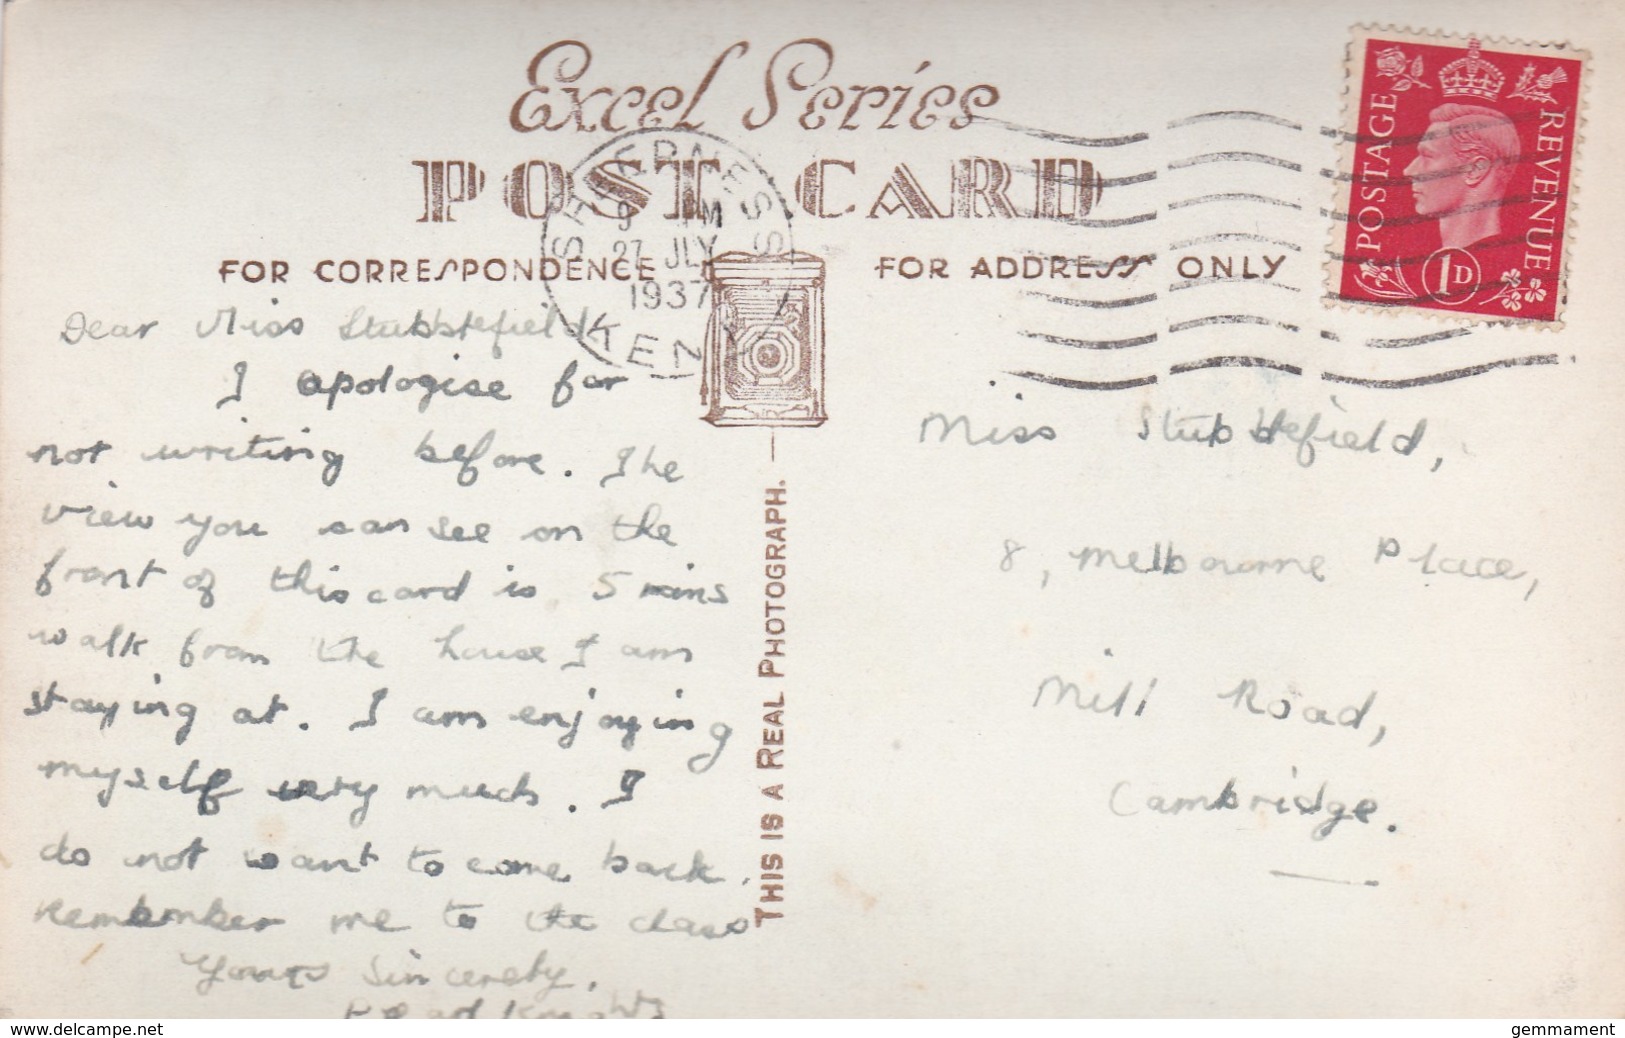 Excel Series
POST CARD
FOR CORRESPONDENCE
FOR ADDRESS ONLY
SHEERNESS
9 M
27 JLY
1937
KENT
POSTAGE
REVENUE
1D
Dear Miss Stubblefield,
I apologise for
not writing before. The
view you can see on the
front of this card is 5 mins
walk from the house I am
staying at. I am enjoying
myself very much. I
do not want to come back.
Remember me to the class
Yours Sincerely,
THIS IS A REAL PHOTOGRAPH.
Miss Stubblefield,
8, Melbourne Place,
Mill Road,
Cambridge.
www.delcampe.net
gemmament